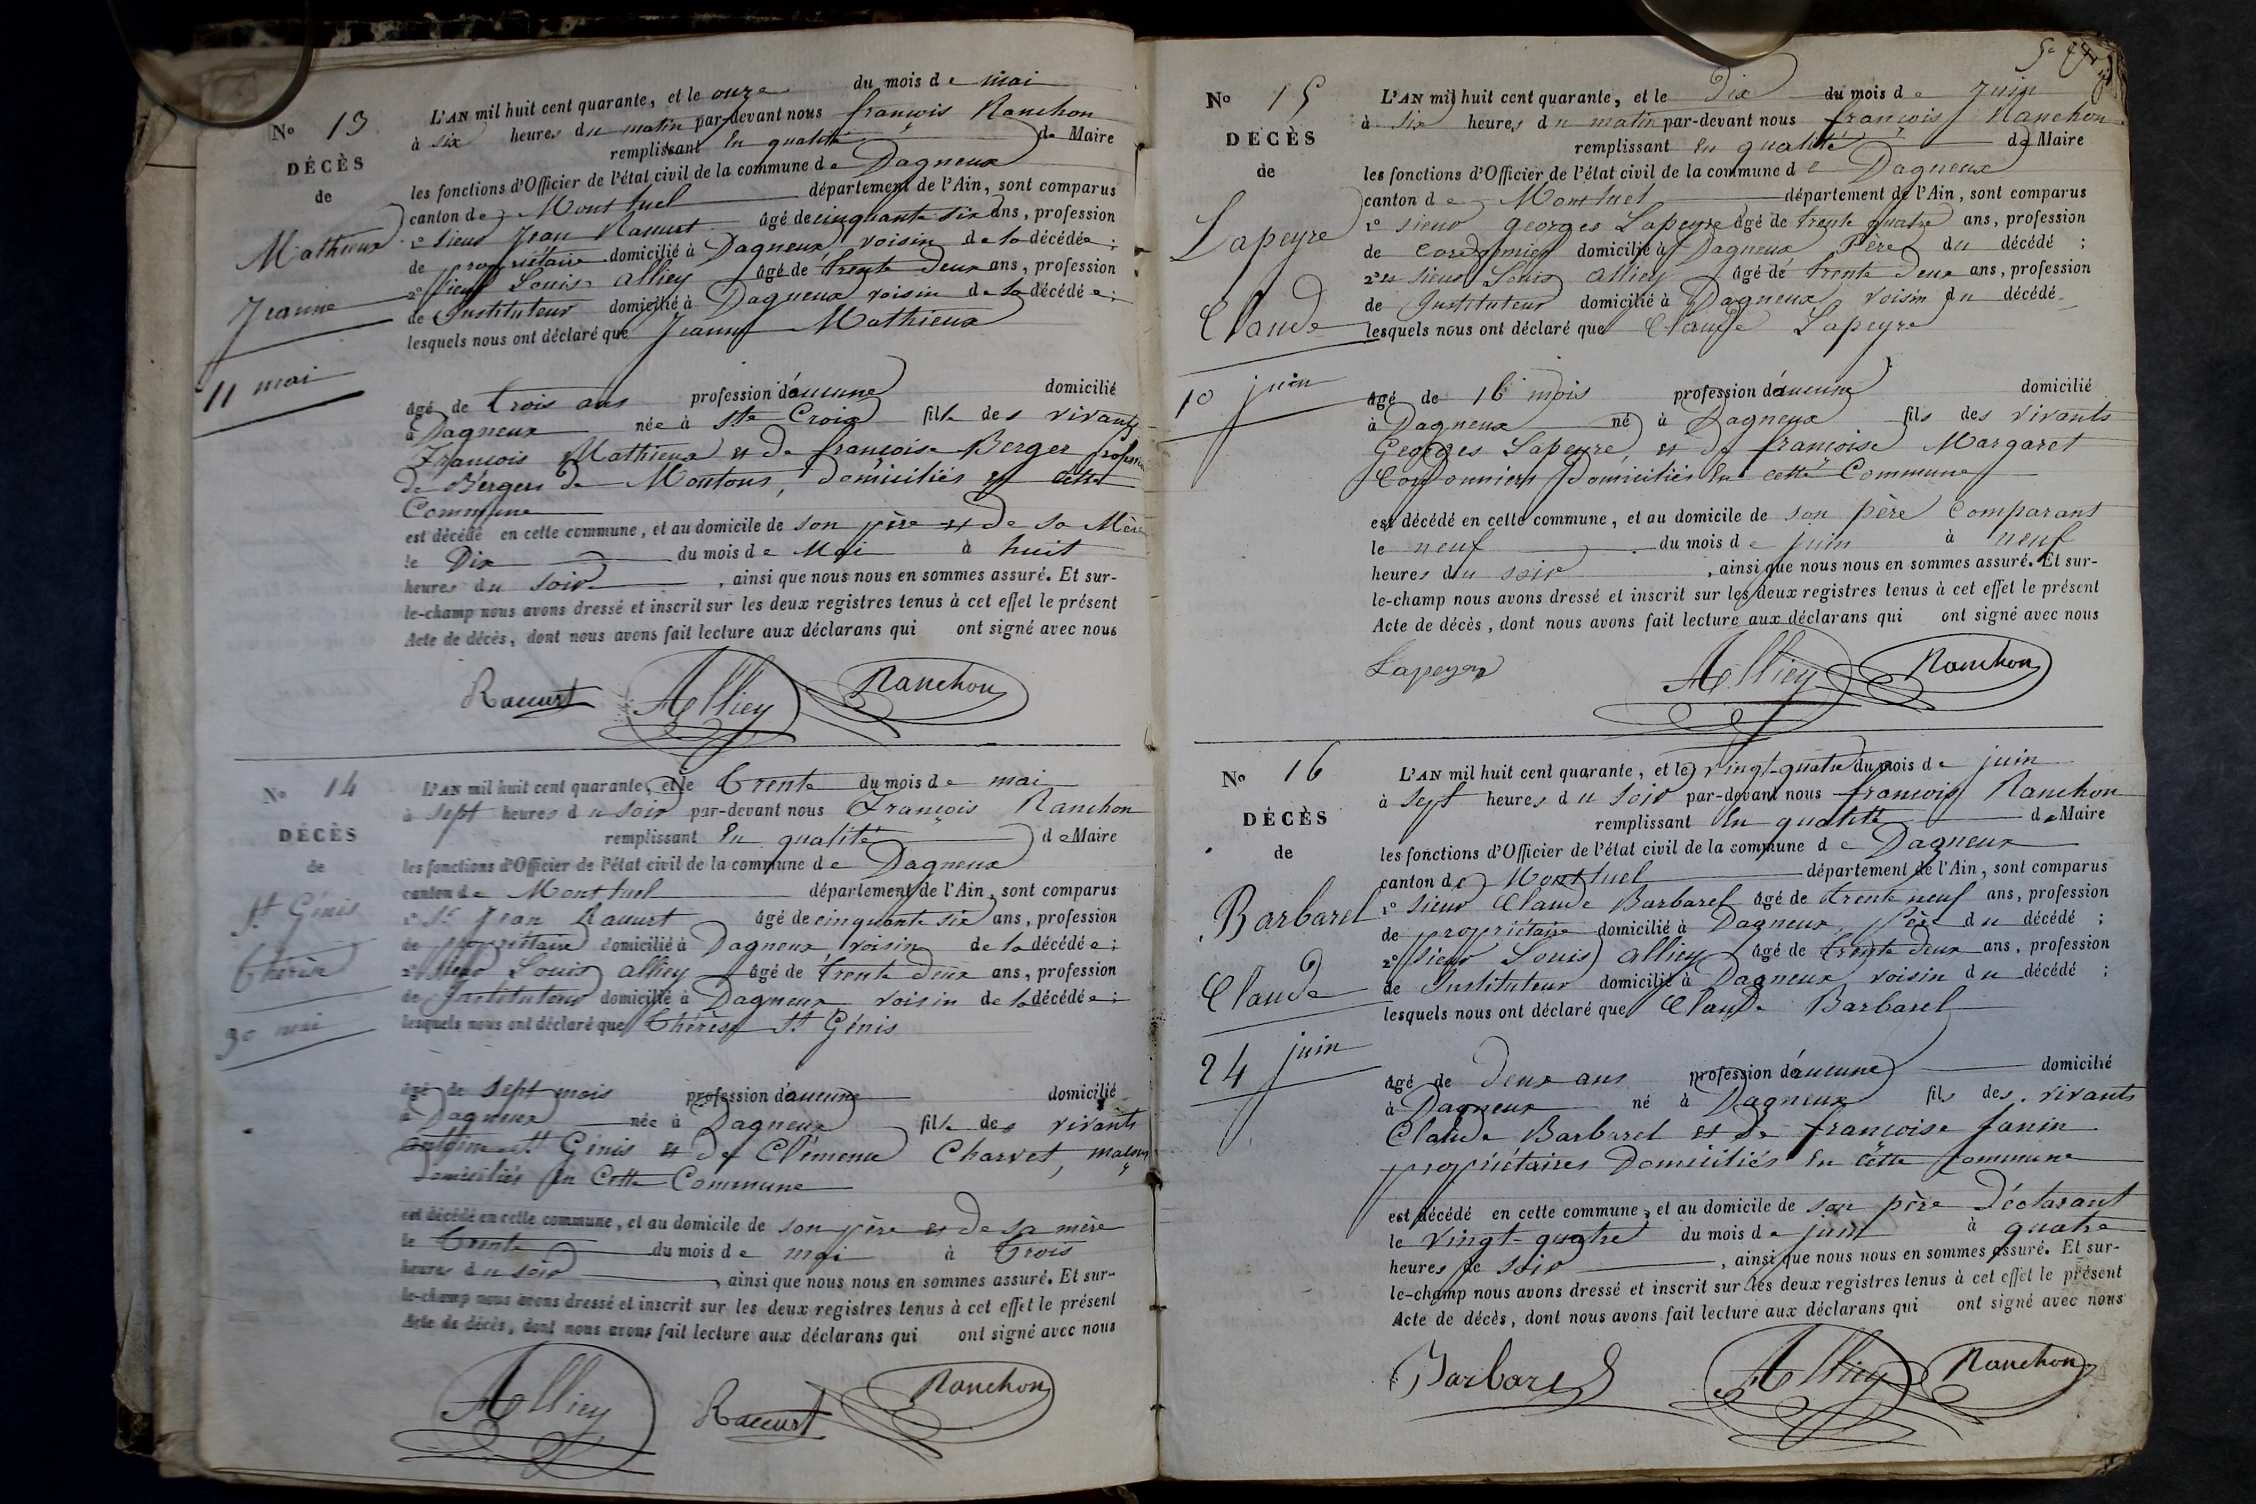 No 13
DÉCÈS
de
Mathieux
Jeanne
11 mai
L'AN mil huit cent quarante, et le onze du mois de mai
à six heures du matin par-devant nous françois Ranchon
remplissant En qualité de Maire
les fonctions d'Officier de l'état civil de la commune de Dagneux
canton de Montluel département de l'Ain, sont comparus
1º sieur Jean Raccurt âgé de cinquante six ans, profession
de propriétaire domicilié à Dagneux voisin de la décédée ;
2º sieur Louis Alliey âgé de trente deux ans, profession
de Instituteur domicilié à Dagneux voisin de la décédée ;
lesquels nous ont déclaré que Jeanne Mathieux
âgé de trois ans profession d'aucune domicilié
à Dagneux née à Ste Croix fille des vivants
François Mathieux et de françoise Berger
de Bergers de Moutons, domiciliés en cette
Commune
est décédé en cette commune, et au domicile de son père et de sa Mère
le Dix du mois de Mai à huit
heures du soir, ainsi que nous nous en sommes assuré. Et sur-
le-champ nous avons dressé et inscrit sur les deux registres tenus à cet effet le présent
Acte de décès, dont nous avons fait lecture aux déclarans qui ont signé avec nous
Raccurt Alliey Ranchon
No 14
DÉCÈS
de
St Génis
Thérèse
30 mai
L'AN mil huit cent quarante, et le trente du mois de mai
à sept heures du soir par-devant nous François Ranchon
remplissant En qualité de Maire
les fonctions d'Officier de l'état civil de la commune de Dagneux
canton de Montluel département de l'Ain, sont comparus
1º Sr Jean Raccurt âgé de cinquante six ans, profession
de propriétaire domicilié à Dagneux voisin de la décédée ;
2º sieur Louis Alliey âgé de trente deux ans, profession
de Instituteur domicilié à Dagneux voisin de la décédée ;
lesquels nous ont déclaré que Thérèse St Génis
âgé de sept mois profession d'aucune domicilié
à Dagneux née à Dagneux fille des vivants
antoine St Génis et de Clémence Charvet, maçon
domiciliés en Cette Commune
est décédé en cette commune, et au domicile de son père et de sa mère
le trente du mois de mai à trois
heures du soir, ainsi que nous nous en sommes assuré. Et sur-
le-champ nous avons dressé et inscrit sur les deux registres tenus à cet effet le présent
Acte de décès, dont nous avons fait lecture aux déclarans qui ont signé avec nous
Alliey Raccurt Ranchon
No 15
DÉCÈS
de
Lapeyre
Claude
10 juin
L'AN mil huit cent quarante, et le Dix du mois de Juin
à six heures du matin par-devant nous françois Ranchon
remplissant En qualité de Maire
les fonctions d'Officier de l'état civil de la commune de Dagneux
canton de Montluel département de l'Ain, sont comparus
1º sieur georges Lapeyre âgé de trente quatre ans, profession
de Cordonnier domicilié à Dagneux Père du décédé ;
2º et sieur Louis Alliey âgé de trente deux ans, profession
de Instituteur domicilié à Dagneux voisin du décédé
lesquels nous ont déclaré que Claude Lapeyre
âgé de 16 mois profession d'aucune domicilié
à Dagneux né à Dagneux fils des vivants
Georges Lapeyre, et de françoise Margaret
Cordonniers Domiciliés En cette Commune
est décédé en cette commune, et au domicile de son père Comparant
le neuf du mois de juin à neuf
heures du soir, ainsi que nous nous en sommes assuré. Et sur-
le-champ nous avons dressé et inscrit sur les deux registres tenus à cet effet le présent
Acte de décès, dont nous avons fait lecture aux déclarans qui ont signé avec nous
Lapeyre Alliey Ranchon
No 16
DÉCÈS
de
Barbarel
Claude
24 juin
L'AN mil huit cent quarante, et le vingt-quatre du mois de juin
à sept heures du soir par-devant nous françois Ranchon
remplissant En qualité de Maire
les fonctions d'Officier de l'état civil de la commune de Dagneux
canton de Montluel département de l'Ain, sont comparus
1º sieur Claude Barbarel âgé de trente neuf ans, profession
de propriétaire domicilié à Dagneux, père du décédé ;
2º sieur Louis Alliey âgé de trente deux ans, profession
de Instituteur domicilié à Dagneux voisin du décédé ;
lesquels nous ont déclaré que Claude Barbarel
âgé de deux ans profession d'aucune domicilié
à Dagneux né à Dagneux fils des vivants
Claude Barbarel et de françoise Janin
propriétaires Domiciliés En cette Commune
est décédé en cette commune, et au domicile de son père Déclarant
le vingt-quatre du mois de juin à quatre
heures de soir, ainsi que nous nous en sommes assuré. Et sur-
le-champ nous avons dressé et inscrit sur les deux registres tenus à cet effet le présent
Acte de décès, dont nous avons fait lecture aux déclarans qui ont signé avec nous
Barbarel Alliey Ranchon